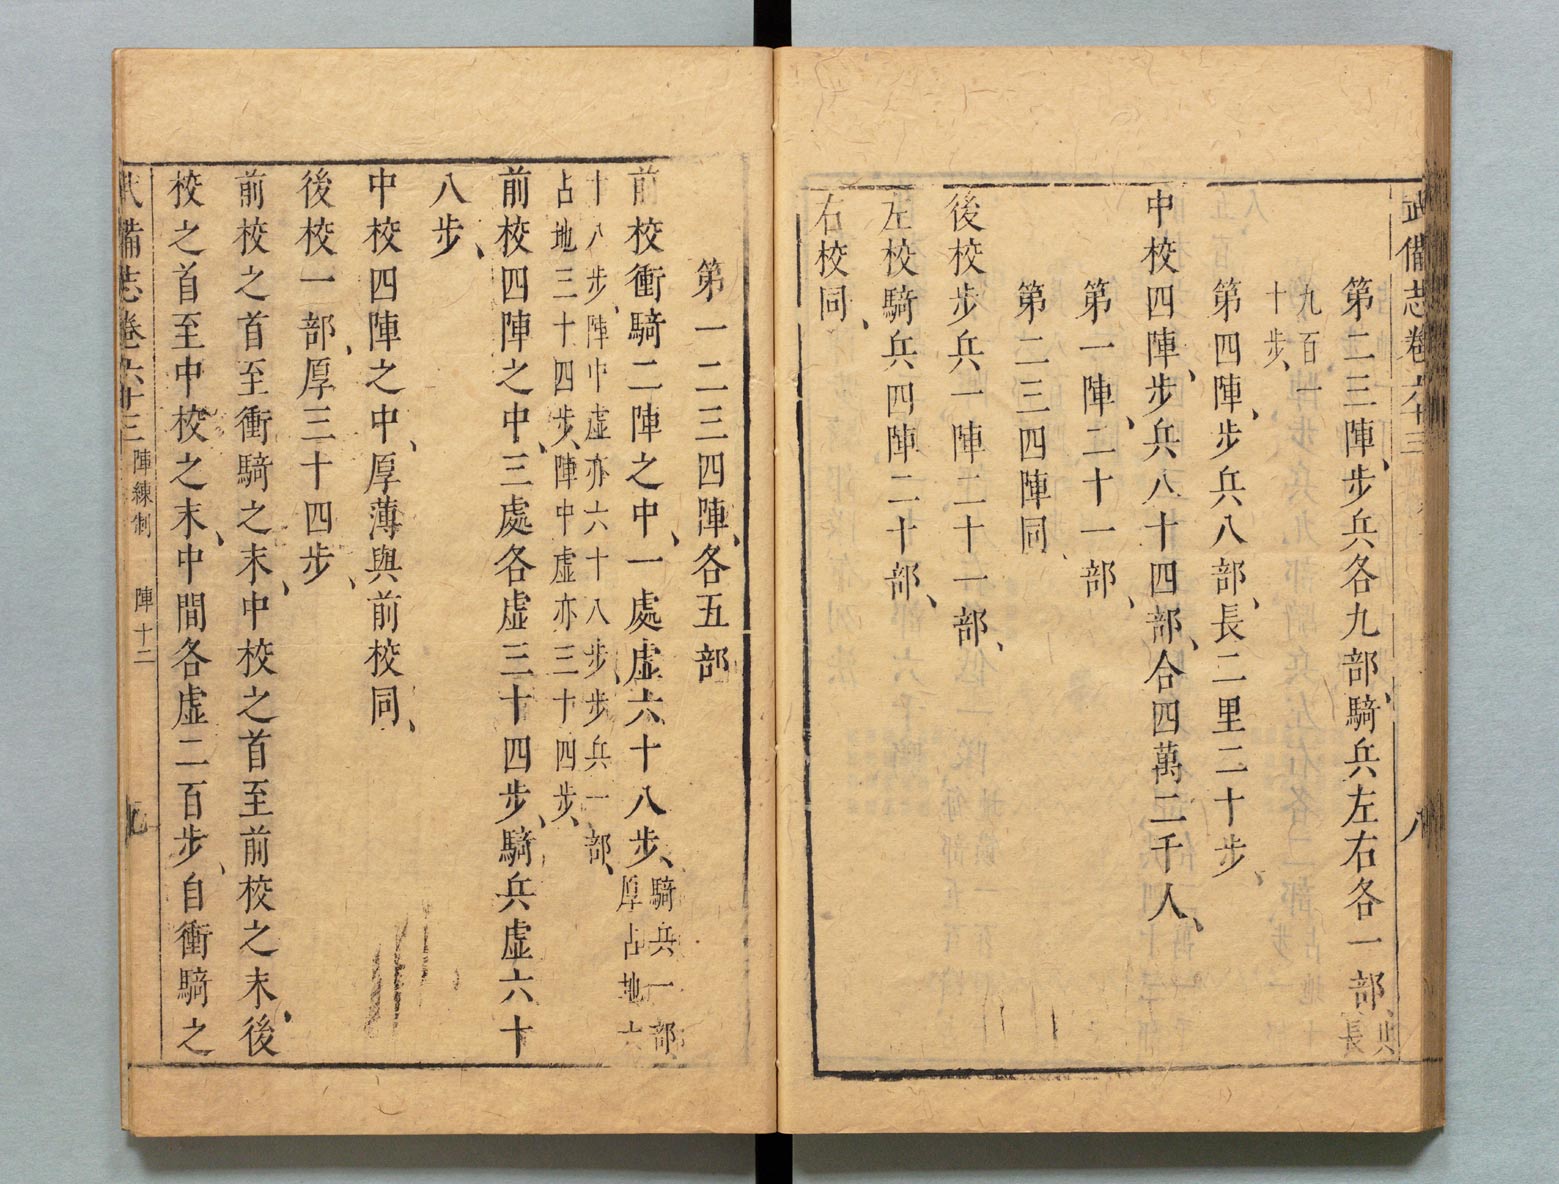 武備志卷六十三
八
第二三陣、步兵各九部、騎兵左右各一部、共長
九百一
十步、
第四陣、步兵八部、長二里二十步、
中校四陣、步兵八十四部、合四萬二千人、
第一陣、二十一部、
第二三四陣同、
後校步兵一陣二十一部、
左校騎兵四陣二十部、
右校同、
第一二三四陣、各五部
前校衝騎二陣之中、一處虛六十八步、騎兵一部、厚占地六
十八步、陣中虛亦六十八步、步兵一部、
占地三十四步、陣中虛亦三十四步、
前校四陣之中、三處各虛三十四步、騎兵虛六十
八步、
中校四陣之中、厚薄與前校同、
後校一部、厚三十四步、
前校之首至衝騎之末、中校之首至前校之末、後
校之首至中校之末、中間各虛二百步、自衝騎之
武備志卷六十三 陣練制 陣十二
九